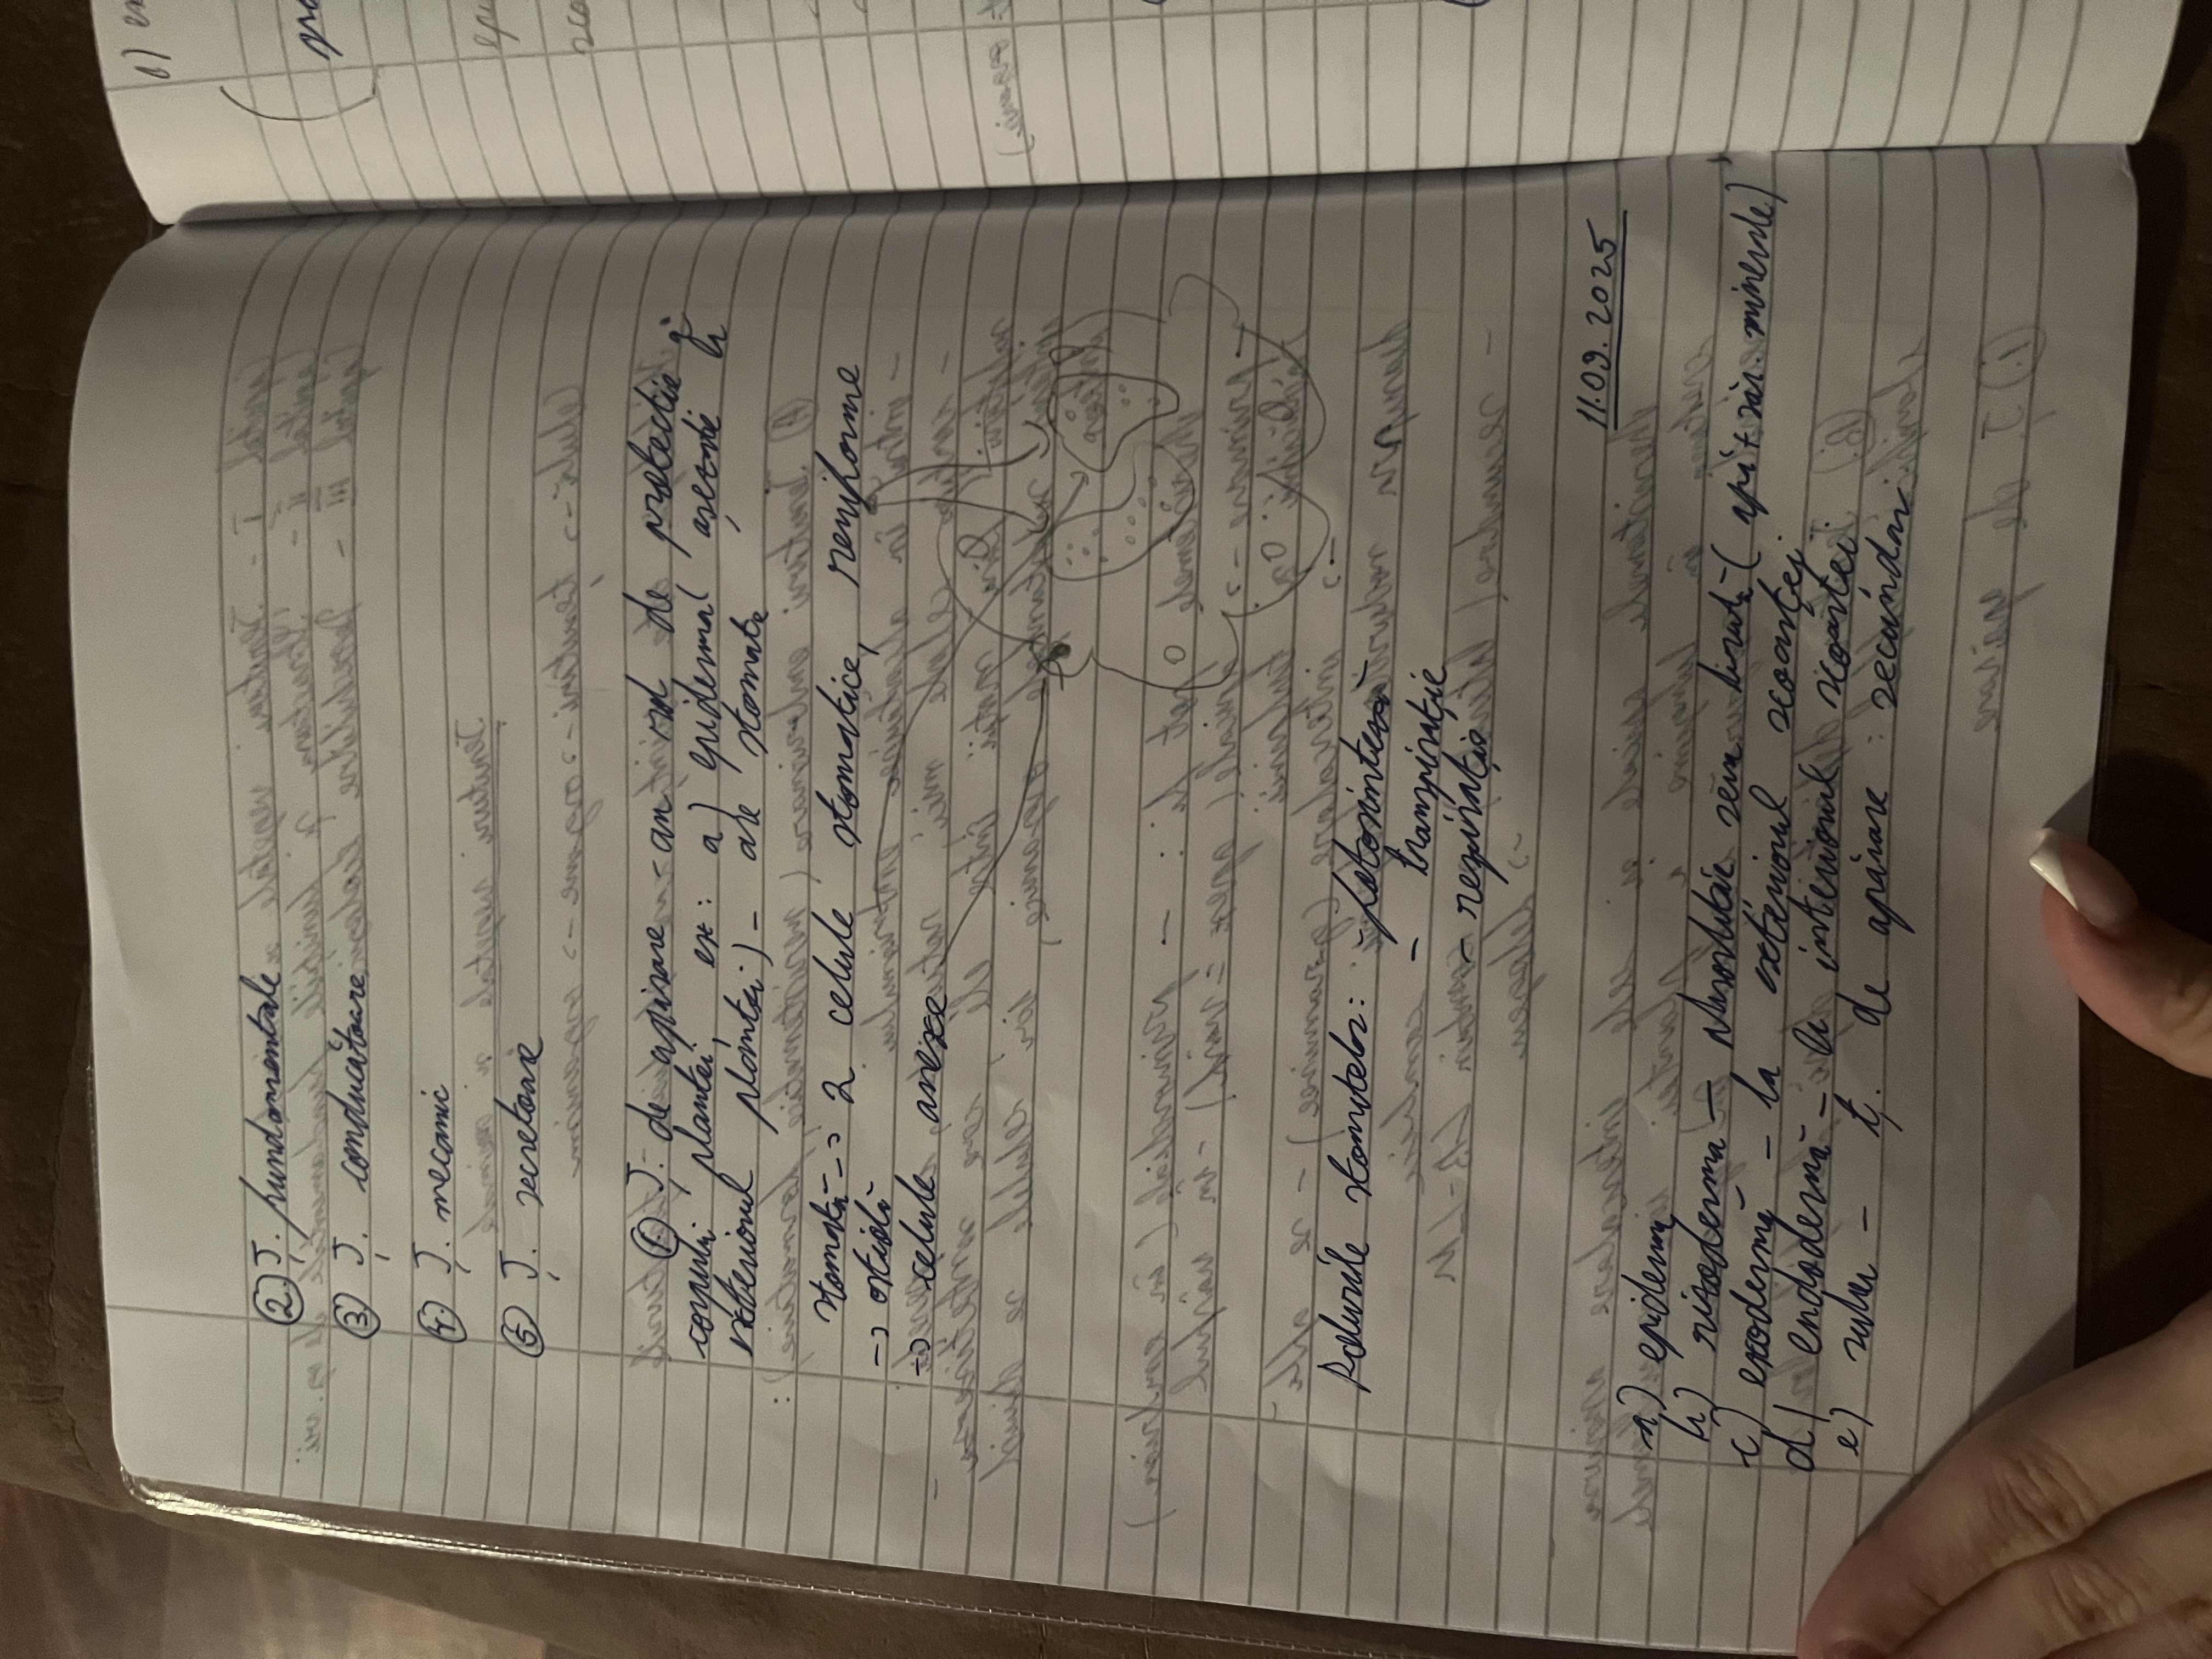 ② Ț. fundamentale
③ Ț. conducătoare
④ Ț. mecanic
⑤ Ț. secretoare
① Ț. de apărare - au rol de protecție a
corpului plantei, ex: a) epiderma (așezată la
exteriorul plantei) - are stomate
stomată -> 2 celule stomatice, reniforme
-> ostiolă
-> celule anexe
Rolurile stomatelor: - fotosinteză
- transpirație
- respirație
11.09.2025
a) epidermă
b) rizodermă - absorbție seva brută (apă + săr. minerale)
c) exodermă - la exteriorul scoarței
d) endodermă - la interiorul scoarței
e) suber - ț. de apărare secundar